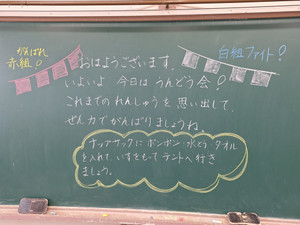 がんばれ
赤組!
白組ファイト!
おはようございます。
いよいよ 今日は うんどう会!
これまでの れんしゅうを 思い出して、
ぜん力で がんばりましょうね。
ナップサックに ポンポン 水とう タオル
を入れて いすをもって テントへ 行き
ましょう。